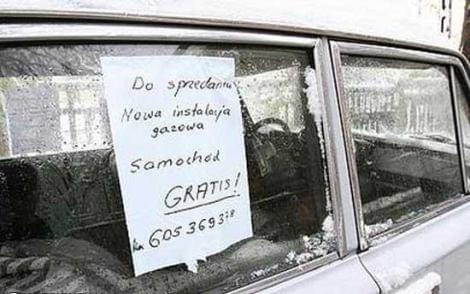 Do sprzedania
Nowa instalacja
gazowa
Samochód
GRATIS!
605 369 378